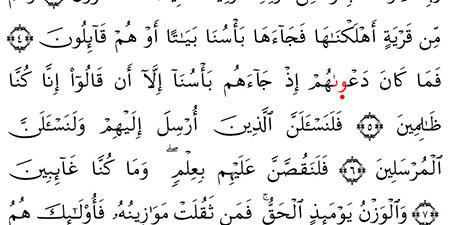 مِّن قَرْيَةٍ أَهْلَكْنَـٰهَا فَجَآءَهَا بَأْسُنَا بَيَـٰتًا أَوْ هُمْ قَآئِلُونَ ﴿٤﴾
فَمَا كَانَ دَعْوَىٰهُمْ إِذْ جَآءَهُم بَأْسُنَآ إِلَّآ أَن قَالُوٓا۟ إِنَّا كُنَّا
ظَـٰلِمِينَ ﴿٥﴾ فَلَنَسْـَٔلَنَّ ٱلَّذِينَ أُرْسِلَ إِلَيْهِمْ وَلَنَسْـَٔلَنَّ
ٱلْمُرْسَلِينَ ﴿٦﴾ فَلَنَقُصَّنَّ عَلَيْهِم بِعِلْمٍ ۖ وَمَا كُنَّا غَآئِبِينَ
﴿٧﴾ وَٱلْوَزْنُ يَوْمَئِذٍ ٱلْحَقُّ ۚ فَمَن ثَقُلَتْ مَوَٰزِينُهُۥ فَأُو۟لَـٰٓئِكَ هُمُ